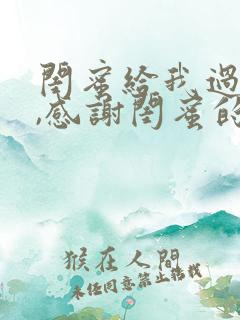 閨蜜給我過
,感謝閨蜜的
猴在人間
未经同意禁止转载